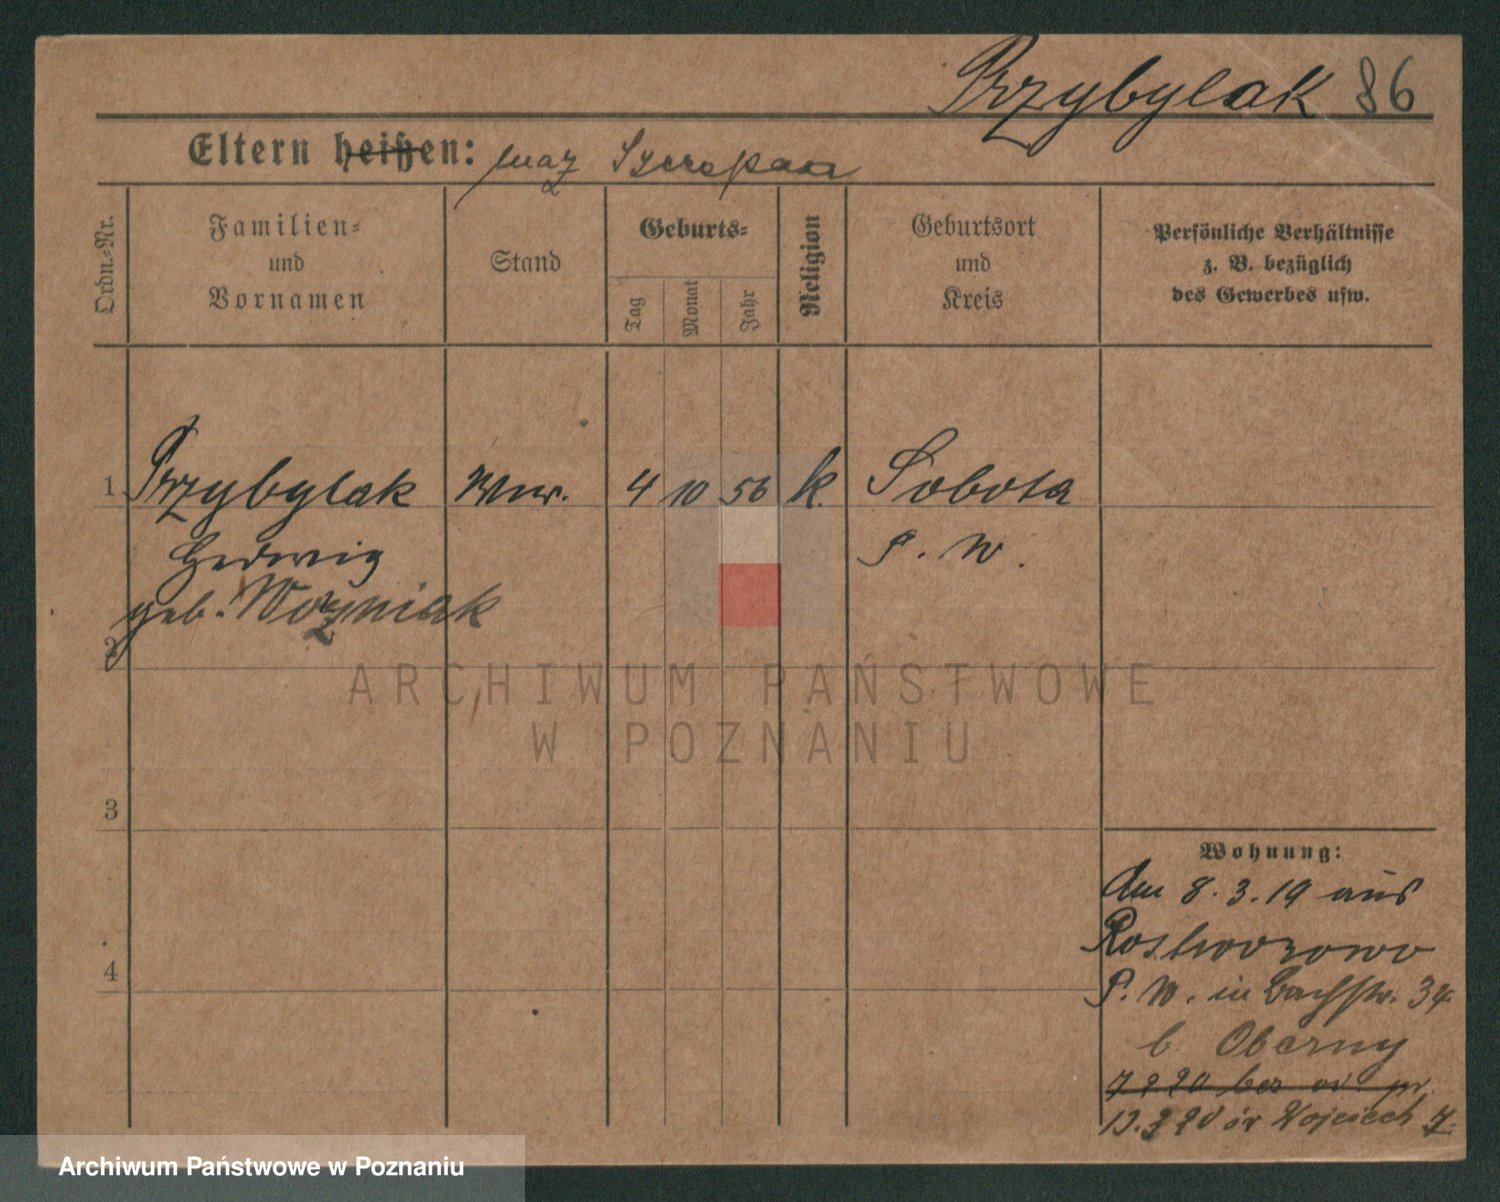 Przybylak 86
Eltern heißen: mąż Szczepan
Ordn.-Nr.
Familien-
und
Vornamen
Stand
Geburts-
Tag
Monat
Jahr
Religion
Geburtsort
und
Kreis
Persönliche Verhältnisse
z. B. bezüglich
des Gewerbes usw.
1 Przybylak Wwe. 4 10 56 k. Sobota
Hedwig P. W.
geb. Wozniak
2
3
4
Wohnung:
Am 8.3.19 aus
Rostworowo
P. W. in Bachstr. 34
b. Oberny
św Wojciech 7
ARCHIWUM PAŃSTWOWE
W POZNANIU
Archiwum Państwowe w Poznaniu